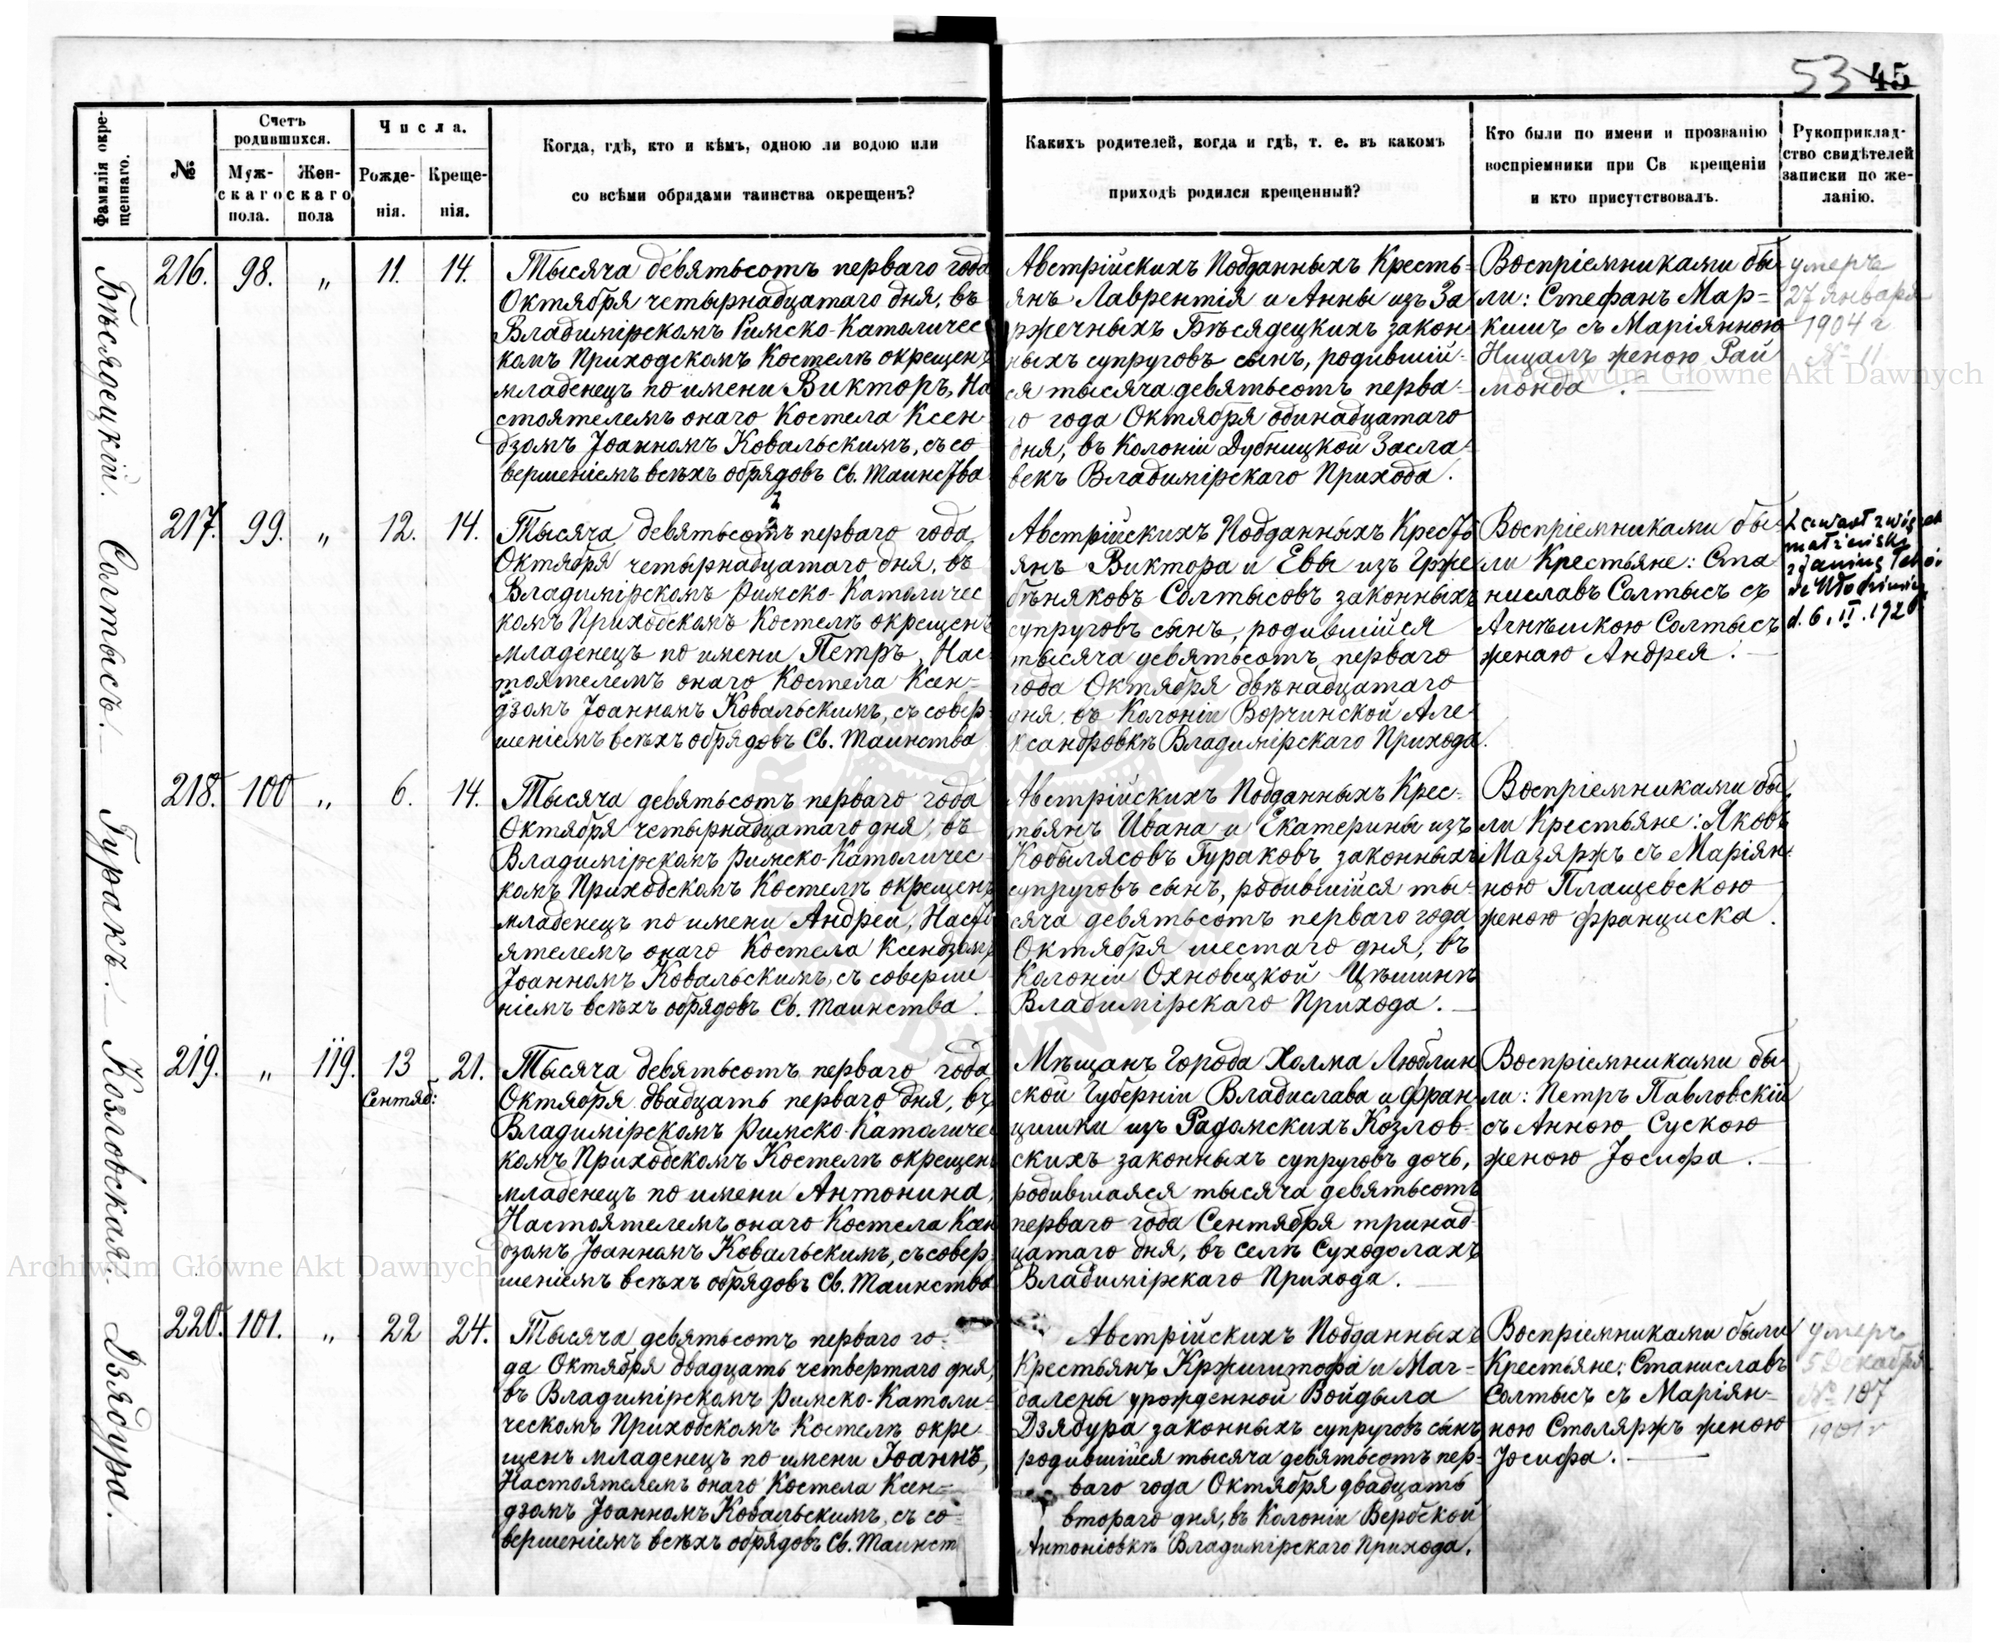 53 45
Фамилія окрещеннаго.
№
Счетъ родившихся.
Мужскаго пола.
Женскаго пола
Числа.
Рожденія.
Крещенія.
Когда, гдѣ, кто и кѣмъ, одною ли водою или
со всѣми обрядами таинства окрещенъ?
Какихъ родителей, когда и гдѣ, т. е. въ какомъ
приходѣ родился крещенный?
Кто были по имени и прозванію
воспріемники при Св крещеніи
и кто присутствовалъ.
Рукоприклад-
ство свидѣтелей
записки по же-
ланію.
Бѣсядецкій.
216. 98. „ 11. 14.
Тысяча девятьсотъ перваго года
Октября четырнадцатаго дня, въ
Владимірскомъ Римско-Католичес
комъ Приходскомъ Костелѣ окрещенъ
младенецъ по имени Викторъ, На
стоятелемъ онаго Костела Ксен
дзомъ Іоанномъ Ковальскимъ, съ со
вершеніемъ всѣхъ обрядовъ Св. Таинства
Австрійскихъ Подданныхъ Кресть-
янъ Лаврентія и Анны изъ За
ржечныхъ Бѣсядецкихъ закон
ныхъ супруговъ сынъ, родившій-
ся тысяча девятьсотъ перва-
го года Октября одинадцатаго
дня, въ Колоніи Дубницкой Засла-
векъ Владимірскаго Прихода.
Воспріемниками бы-
ли: Стефанъ Мар-
кишъ съ Маріянною
Ницалъ женою Рай
монда.
умеръ
27 января
1904 г
№ 11
Солтысъ.
217. 99. „ 12. 14.
Тысяча девятьсотъ перваго года
Октября четырнадцатаго дня, въ
Владимірскомъ Римско-Католичес
комъ Приходскомъ Костелѣ окрещенъ
младенецъ по имени Петръ, Нас-
тоятелемъ онаго Костела Ксен-
дзомъ Іоанномъ Ковальскимъ, съ совер-
шеніемъ всѣхъ обрядовъ Св. Таинства
Австрійскихъ Подданныхъ Кресть
янъ Виктора и Евы изъ Грже
бѣняковъ Солтысовъ законныхъ
супруговъ сынъ, родившійся
тысяча девятьсотъ перваго
года Октября двѣнадцатаго
дня въ Колоніи Ворчинской Але-
ксандровкѣ Владимірскаго Прихода.
Воспріемниками бы-
ли Крестьяне: Ста
ниславъ Солтысъ съ
Агнѣшкою Солтысъ
женою Андрея.
zawarł związek
małżeński
d. 6. II. 192
Гуракъ.
218. 100 „ 6. 14.
Тысяча девятьсотъ перваго года
Октября четырнадцатаго дня, въ
Владимірскомъ Римско-Католичес
комъ Приходскомъ Костелѣ окрещенъ
младенецъ по имени Андрей, Насто
ятелемъ онаго Костела Ксендзомъ
Іоанномъ Ковальскимъ, съ соверше
ніемъ всѣхъ обрядовъ Св. Таинства.
Австрійскихъ Подданныхъ Крес-
тьянъ Ивана и Екатерины изъ
Кобылясовъ Гураковъ законныхъ
супруговъ сынъ, родившійся ты-
сяча девятьсотъ перваго года
Октября шестаго дня, въ
Колоніи Охновецкой Цѣшинѣ
Владимірскаго Прихода.
Воспріемниками бы
ли Крестьяне: Яковъ
Мазяржъ съ Маріян-
ною Плащевскою
женою Франциска.
Козловская.
219. „ 119. 13 21.
Сентяб:
Тысяча девятьсотъ перваго года
Октября двадцать перваго дня, въ
Владимірскомъ Римско-Католичес
комъ Приходскомъ Костелѣ окрещенъ
младенецъ по имени Антонина,
Настоятелемъ онаго Костела Ксен
дзомъ Іоанномъ Ковальскимъ, съ совер
шеніемъ всѣхъ обрядовъ Св. Таинства
Мѣщанъ Города Холма Люблин
ской Губерніи Владислава и Фран
цишки изъ Радомскихъ Козлов-
скихъ законныхъ супруговъ дочь,
родившаяся тысяча девятьсотъ
перваго года Сентября тринад-
цатаго дня, въ селѣ Суходолахъ
Владимірскаго Прихода.
Воспріемниками бы
ли: Петръ Павловскій
съ Анною Сускою
женою Іосифа.
Дзядура.
220. 101. „ 22 24.
Тысяча девятьсотъ перваго го-
да Октября двадцать четвертаго дня,
въ Владимірскомъ Римско-Католи-
ческомъ Приходскомъ Костелѣ окре-
щенъ младенецъ по имени Іоаннъ,
Настоятелемъ онаго Костела Ксен-
дзомъ Іоанномъ Ковальскимъ, съ со-
вершеніемъ всѣхъ обрядовъ Св. Таинст
Австрійскихъ Подданныхъ
Крестьянъ Кржиштофа и Маг-
далены урожденной Войдыла
Дзядура законныхъ супруговъ сынъ
родившійся тысяча девятьсотъ пер-
ваго года Октября двадцать
втораго дня, въ Колоніи Вербской
Антоніовкѣ Владимірскаго Прихода.
Воспріемниками были
Крестьяне: Станиславъ
Солтысъ съ Маріян-
ною Столяржъ женою
Іосифа.
умеръ
5 Декабря
№ 107
1901 г
Archiwum Główne Akt Dawnych
Archiwum Główne Akt Dawnych